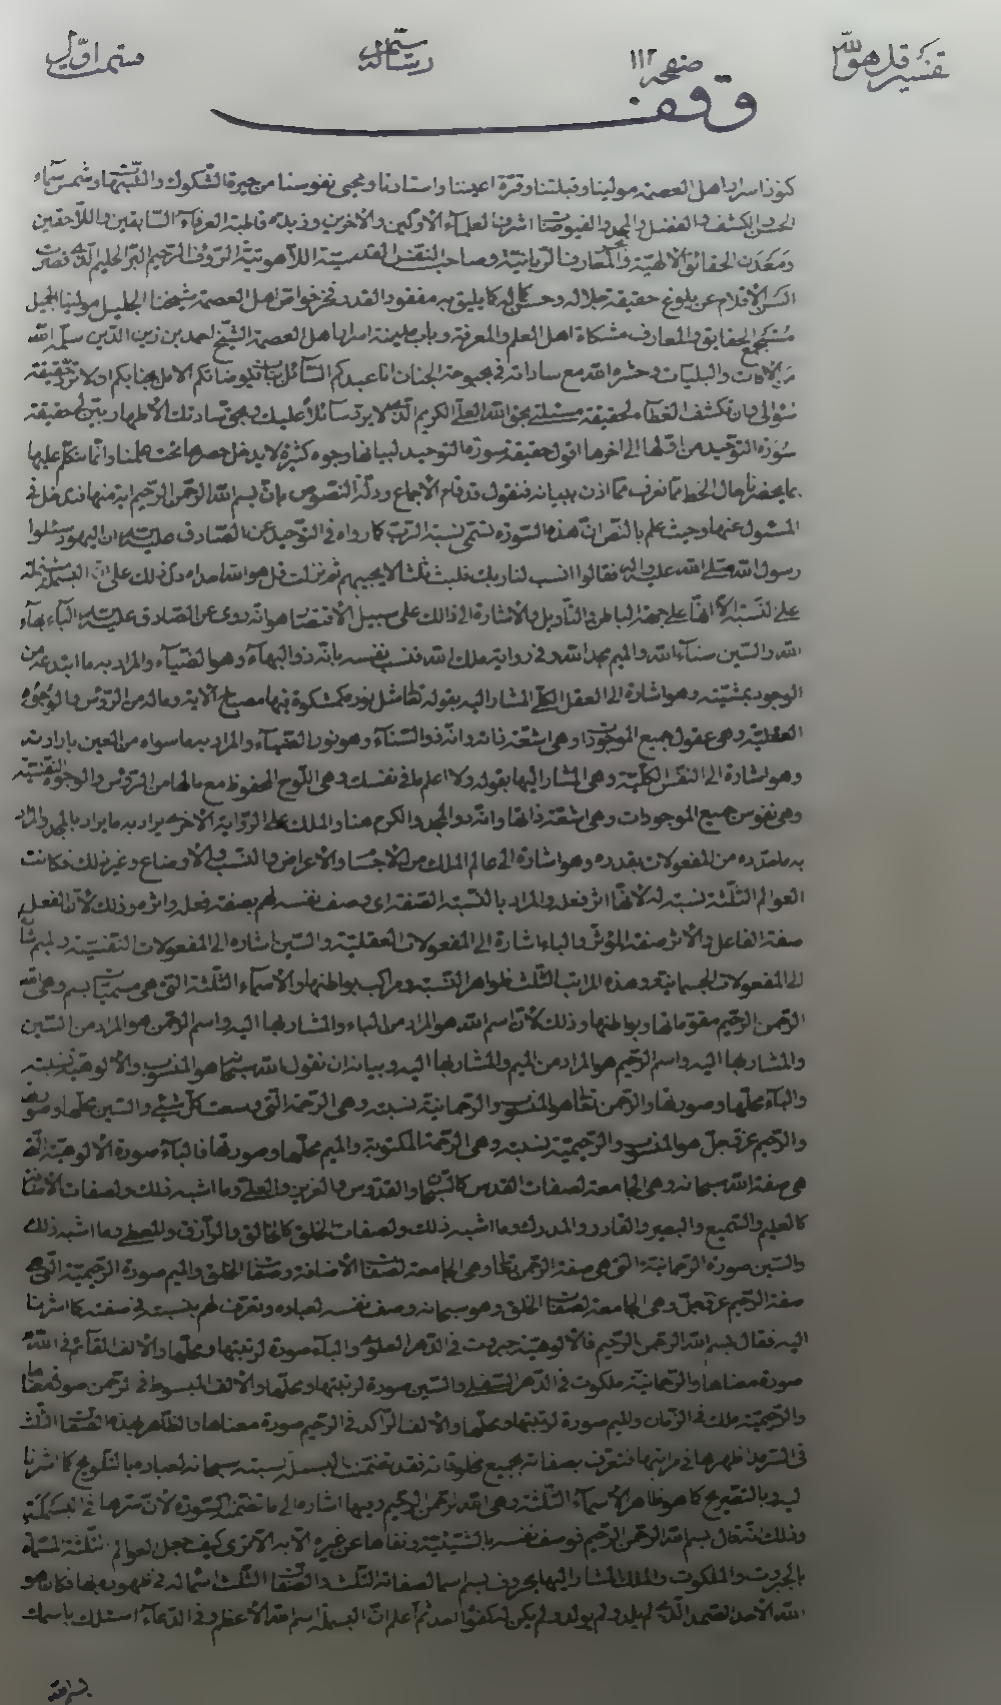 تفسير قل هو الله
صفحه ١١٢
رسالة ستم
قسمت اول
وقف
كنوز اسرار اهل العصمة مولينا وقبلتنا وقرة اعيننا واستادنا ومحيى نفوسنا من حيرة الشكوك والشبهات وشمس سماء
الكشف والفضل والمجد والفيوضات اشرف العلماء الاولين والاخرين وزبدة قاطبة العرفاء السابقين واللاحقين
ومعدن الحقائق الالهية والمعارف الربانية وصاحب النفس القدسية اللاهوتية الرؤف الرحيم البر الحليم الذى قصرت
السن الاقلام عن بلوغ حقيقة جلاله وحسن كما يليق به مفقود القدر فخر خواص اهل العصمة شيخنا الجليل مولينا الجميل
مستجمع الحقايق والمعارف مشكاة اهل العلم والمعرفة وباب مدينة اسرار اهل العصمة الشيخ احمد بن زين الدين سلمه الله
من الافات والبليات وحشره الله مع ساداته فى بحبوحة الجنان انا عبدكم السائل الامل جنابكم ان لا تردوا
سؤالى بان تكشف الغطاء لحقيقة مسئلتى بحق الله العلى الكريم الذى لا يرد سائلا عليك وبحق ساداتك الاطهار وبين لى حقيقة
سورة التوحيد من اولها الى اخرها اقول حقيقة سورة التوحيد لبيانها وجوه كثيرة لا يدخل حصرها تحت علمنا وانما نتكلم عليها
بما يحضرنا حال الخط مما نعرف مما اذن ببيانه فنقول قد قام الاجماع ودلت النصوص بان بسم الله الرحمن الرحيم اية منها فتدخل فى
المسئول عنها وحيث علم بالنص ان هذه السورة تسمى نسبة الرب كما رواه فى التوحيد عن الصادق عليه السلام ان اليهود سئلوا
رسول الله صلى الله عليه واله فقالوا انسب لنا ربك فلبث ثلثا لا يجيبهم ثم نزلت قل هو الله احد اه دل ذلك على ان البسملة مشتملة
على النسبة الا انها على جهة الباطن والتاويل والاشارة الى ذلك على سبيل الاقتصار هو انه روى عن الصادق عليه السلام الباء بهاء
الله والسين سناء الله والميم مجد الله وفى رواية ملك الله فنسب نفسه بانه ذو البهاء وهو الضياء والمراد به ما ابتدعه من
الوجود بمشيته وهو اشارة الى العقل الكلى المشار اليه بقوله تعالى مثل نوره كمشكوة فيها مصباح الاية وماله من الرؤس والوجوه
العقلية وهى عقول جميع الموجودات وهى اشعة ذاته وانه ذو السناء وهو نور الضياء والمراد به ما سواه من العين بارادته
وهو اشارة الى النفس الكلية وهى المشار اليها بقوله ولا اعلم ما فى نفسك وهى اللوح المحفوظ مع مالها من الرؤس والوجوه النفسية
وهى نفوس جميع الموجودات وهى اشعة ذاتها وانه ذو المجد والكرم هنا والملك على الرواية الاخرى يراد به ما يراد بالمجد والمراد
به ما حدده من المفعولات بقدره وهو اشارة الى عالم الملك من الاجسام والاعراض والنسب والاوضاع وغير ذلك فكانت
العوالم الثلثة نسبة له لانها اثر فعله والمراد بالنسبة الصفة اى وصف نفسه لهم بصفة فعله واثره وذلك لان الفعل
صفة الفاعل والاثر صفة المؤثر والباء اشارة الى المفعولات العقلية والسين اشارة الى المفعولات النفسية والميم اشارة
الى المفعولات الجسمانية وهذه المراتب الثلث ظواهر النسبة ومراكب بواطنها والاسماء الثلثة التى هى مسميات بسم وهى الله
الرحمن الرحيم مقوماتها وبواطنها وذلك لان اسم الله هو المراد من الباء والمشار بها اليه واسم الرحمن هو المراد من السين
والمشار بها اليه واسم الرحيم هو المراد من الميم والمشار بها اليه وبيانه ان نقول الله سبحانه هو المنسوب والالوهية نسبته
والباء محلها وصورتها والرحمن تعالى هو المنسوب والرحمانية نسبته وهى الرحمة التى وسعت كل شئ والسين محلها وصورتها
والرحيم عز وجل هو المنسوب والرحيمية نسبته وهى الرحمة المكتوبة والميم محلها وصورتها فالباء صورة الالوهية التى
هى صفة الله سبحانه وهى الجامعة لصفات القدس كالسبحان والقدوس والعزيز والعلى وما اشبه ذلك ولصفات الاضافة
كالعليم والسميع والبصير والقادر والمدرك وما اشبه ذلك ولصفات الخلق كالخالق والرازق والمعطى وما اشبه ذلك
والسين صورة الرحمانية التى هى صفة الرحمن تعالى وهى الجامعة لصفات الاضافة وصفات الخلق والميم صورة الرحيمية التى هى
صفة الرحيم عز وجل وهى الجامعة لصفات الخلق وهو سبحانه وصف نفسه لعباده وتعرف لهم بنسبته فى صفته كما اشرنا
اليه فقال بسم الله الرحمن الرحيم فالالوهية جبروت فى الدهر العلوى والباء صورة لرتبتها ومحلها والالف القائم فى الله
صورة معناها والرحمانية ملكوت فى الدهر السفلى والسين صورة لرتبتها ومحلها والالف المبسوط فى الرحمن صورة معناها
والرحيمية ملك فى الزمان والميم صورة لرتبتها ومحلها والالف الراكد فى الرحيم صورة معناها والظاهر بهذه الصفات الثلث
فى السرمد اظهرها فى مراتبها فتعرف بصفاته لجميع مخلوقاته فقد تضمنت البسملة نسبته سبحانه لعباده بالتلويح كما اشرنا
اليه وبالتصريح كما هو ظاهر الاسماء الثلثة وهى الله الرحمن الرحيم وفيها اشارة الى ما تضمنته السورة لان سرها فى البسملة
وذلك انه قال بسم الله الرحمن الرحيم فوصف نفسه ونفاها عن غيره الا به الا ترى كيف جعل العوالم الثلثة المسماة
بالجبروت والملكوت والملك المشار اليها بحروف بسم اسما لصفاته الثلث والصفات الثلث اسماء له فى ظهوره بها فكان هو
الله الاحد الصمد الذى لم يلد ولم يولد ولم يكن له كفوا احد ثم اعلم ان البسملة اسم الله الاعظم وفى الدعاء اسئلك باسمك
بسم الله